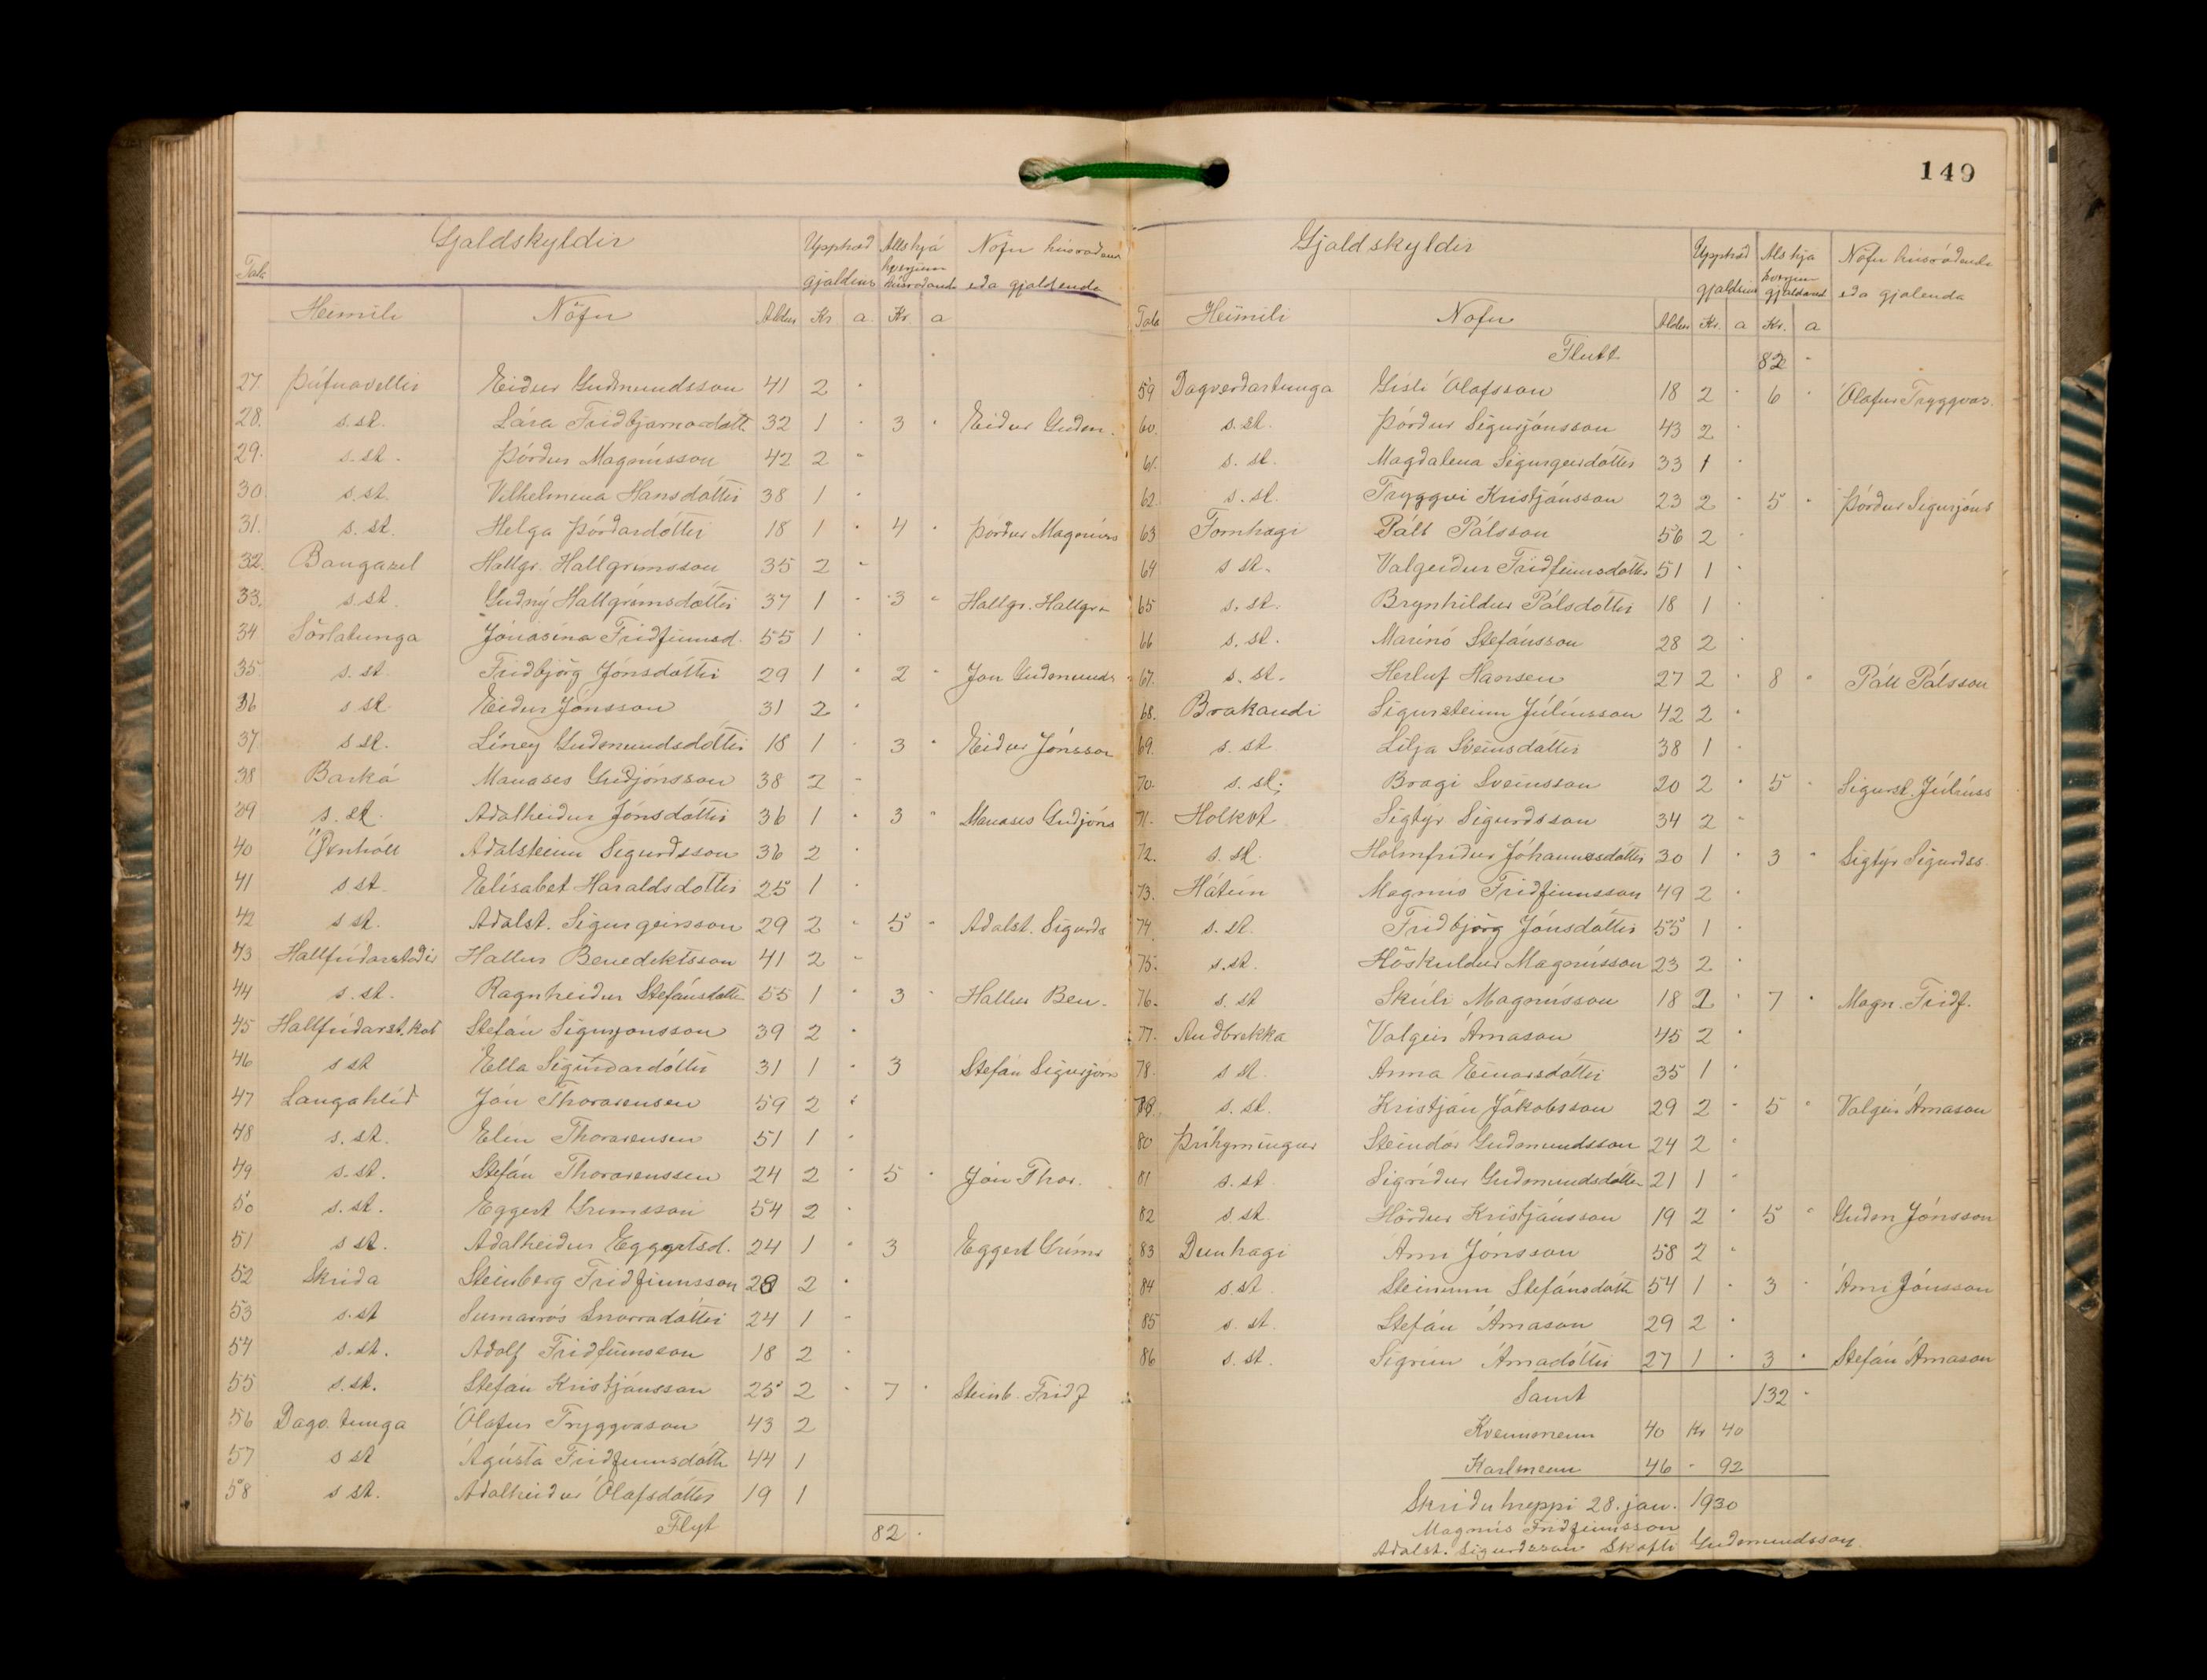 149
Gjaldskyldir Upphæð Alls hjá Nöfn húsráðenda
Tala gjaldsins hverjum húsráðanda eða gjaldenda
Heimili Nöfn Aldur Kr a. Kr. a
27. Þúfnavellir Eiður Guðmundsson 41 2 -
28. s.st. Lára Friðbjarnardótt. 32 1 - 3 - Eiður Guðm.
29. s.st. Þórður Magnússon 42 2 -
30 s.st. Vilhelmina Hansdóttir 38 1 -
31. s.st. Helga Þórðardóttir 18 1 - 4 - Þórður Magnúss
32. Baugasel Hallgr. Hallgrímsson 35 2 -
33. s.st. Guðný Hallgrímsdóttir 37 1 - 3 - Hallgr. Hallgr
34 Sörlatunga Jónasína Friðfinnsd. 55 1 -
35 s.st. Friðbjörg Jónsdóttir 29 1 - 2 - Jón Guðmunds
36 s st Eiður Jónsson 31 2 -
37 s st. Líney Guðmundsdóttir 18 1 - 3 - Eiður Jónsson
38 Barká Manases Guðjónsson 38 2 -
39 s. st. Aðalheiður Jónsdóttir 36 1 - 3 - Manases Guðjóns
40 Öxnhóll Aðalsteinn Sigurðsson 36 2 -
41 s st. Elísabet Haraldsdottir 25 1 -
42 s st. Aðalst. Sigurgeirsson 29 2 - 5 - Aðalst. Sigurðs
43 Hallfríðarstaðir Hallur Benediktsson 41 2 -
44 s. st. Ragnheiður Stefánsdótt 55 1 - 3 - Hallur Ben.
45 Hallfríðarst.kot Stefán Sigurjonsson 39 2 -
46 s st Ella Sigurðardóttir 31 1 - 3 Stefán Sigurjóns
47 Langahlíð Jón Thorarensen 59 2 -
48 s. st. Elín Thorarensen 51 1 -
49 s.st. Stefán Thorarenssen 24 2 - 5 - Jón Thor.
50 s. st. Eggert Grímsson 54 2 -
51 s st. Aðalheiður Eggertsd. 24 1 - 3 Eggert Gríms
52 Skriða Steinberg Friðfinnsson 28 2 -
53 s.st Sumarrós Snorradóttir 24 1 -
54 s.st. Adolf Friðfinnsson 18 2 -
55 s.st. Stefán Kristjánsson 25 2 - 7 - Steinb. Friðf
56 Dagv.tunga Ólafur Tryggvason 43 2
57 s st Ágústa Friðfinnsdótti 44 1
58 s st. Aðalheiður Ólafsdóttir 19 1
Flyt 82 -
Gjaldskyldir Upphæð Als hjá Nöfn húsráðenda
gjaldsins hverjum gjaldand eða gjalenda
Tala Heimili Nöfn Aldur Kr. a Kr. a
Flutt 82 -
59 Dagverðartunga Gísli Ólafsson 18 2 - 6 - Ólafur Tryggvas.
60. s. st. Þórður Sigurjónsson 43 2 -
61. s. st. Magdalena Sigurgeirsdóttir 33 1 -
62. s. st. Tryggvi Kristjánsson 23 2 - 5 - Þórður Sigurjóns
63 Fornhagi Páll Pálsson 56 2 -
64 s st. Valgerður Friðfinnsdóttir 51 1 -
65 s. st. Brynhildur Pálsdóttir 18 1 -
66 s. st. Marínó Stefánsson 28 2 -
67. s. st. Herluf Hansen 27 2 - 8 - Páll Pálsson
68. Brakandi Sigursteinn Júlíusson 42 2 -
69. s. st. Lilja Sveinsdóttir 38 1 -
70. s. st. Bragi Sveinsson 20 2 - 5 - Sigurst. Júlíuss
71. Holkot Sigtýr Sigurðsson 34 2 -
72. s. st. Hólmfríður Jóhannesdóttir 30 1 - 3 - Sigtýr Sigurðss.
73. Hátún Magnús Friðfinnsson 49 2 -
74. s. st. Friðbjörg Jónsdóttir 55 1 -
75. s.st. Höskuldur Magnússon 23 2 -
76. s. st Skúli Magnússon 18 2 - 7 - Magn. Friðf.
77. Auðbrekka Valgeir Árnason 45 2 -
78. s st. Anna Einarsdóttir 35 1 -
79. s. st. Kristján Jakobsson 29 2 - 5 - Valgeir Árnason
80 Þríhyrningur Steindór Guðmundsson 24 2 -
81 s. st Sigríður Guðmundsdóttir 21 1 -
82 s st. Hörður Kristjánsson 19 2 - 5 - Guðm Jónsson
83 Dunhagi Árni Jónsson 58 2 -
84 s.st Steinunn Stefánsdótti 54 1 - 3 - Árni Jónsson
85 s. st. Stefán Árnason 29 2 -
86 s. st. Sigrún Árnadóttir 27 1 - 3 - Stefán Árnason
Samt 132 -
Kvennmenn 40 Kr 40
Karlmenn 46 - 92
Skriðuhreppi 28. jan. 1930
Magnús Friðfinnsson
Aðalst. Sigurðsson Skafti Guðmundsson.